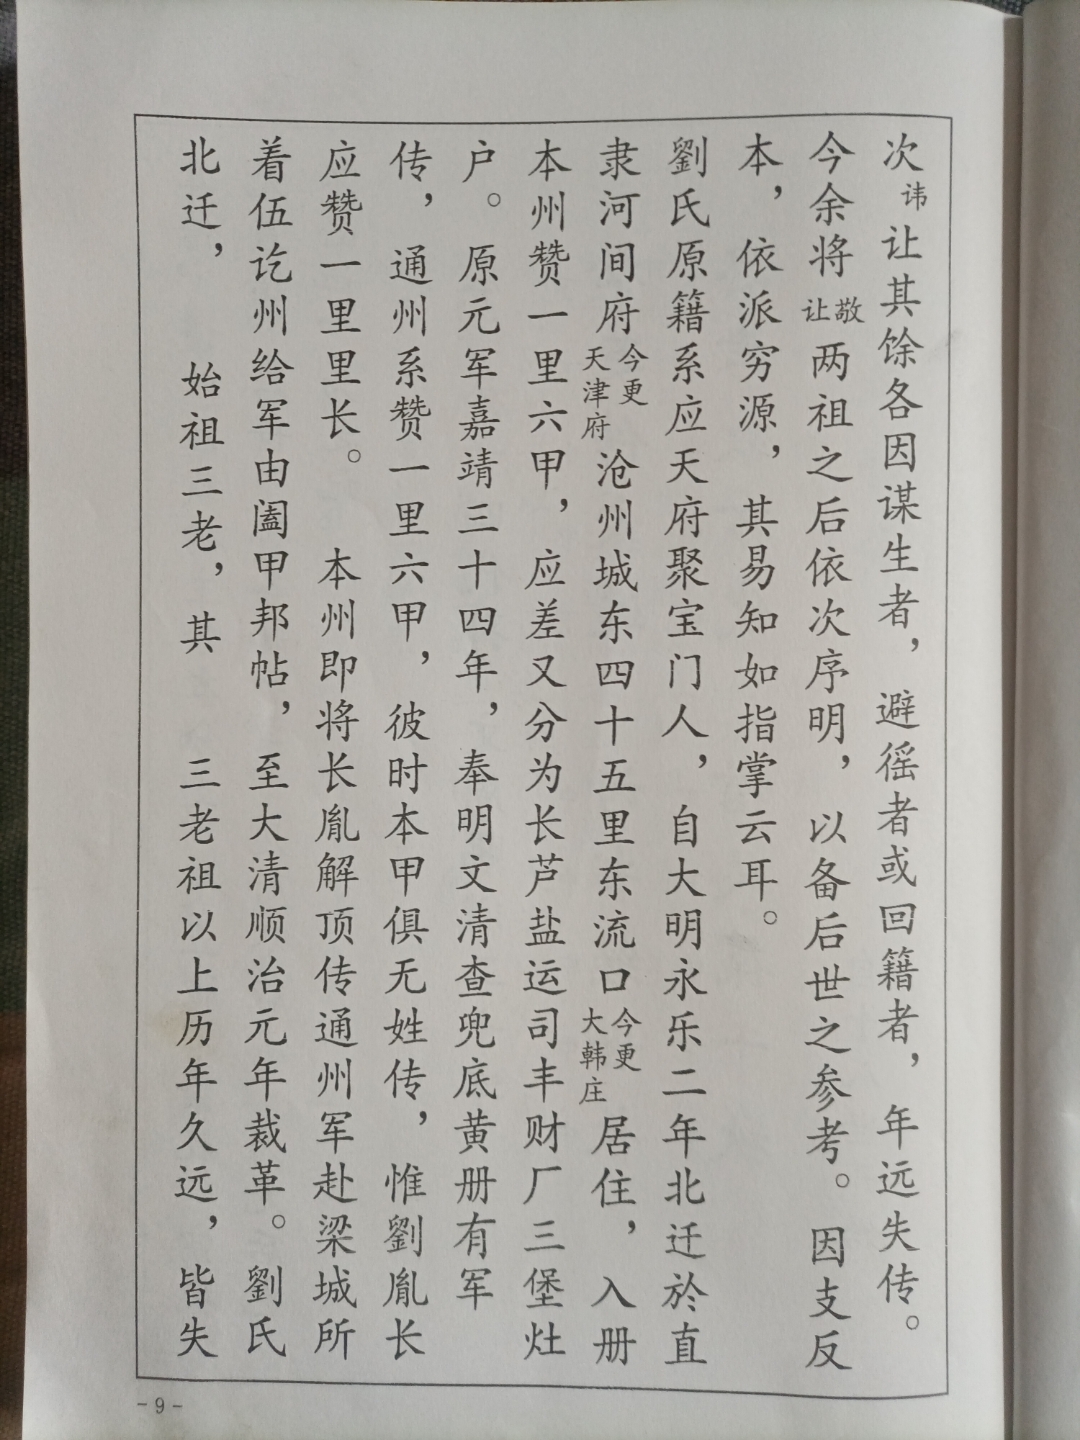 次讳让其馀各因谋生者，避徭者或回籍者，年远失传。
今余将敬让两祖之后依次序明，以备后世之参考。因支反
本，依派穷源，其易知如指掌云耳。
劉氏原籍系应天府聚宝门人，自大明永乐二年北迁於直
隶河间府今更天津府沧州城东四十五里东流口今更大韩庄居住，入册
本州赞一里六甲，应差又分为长芦盐运司丰财厂三堡灶
户。原元军嘉靖三十四年，奉明文清查兜底黄册有军
传，通州系赞一里六甲，彼时本甲俱无姓传，惟劉胤长
应赞一里里长。本州即将长胤解顶传通州军赴梁城所
着伍讫州给军由阖甲邦帖，至大清顺治元年裁革。劉氏
北迁，始祖三老，其三老祖以上历年久远，皆失
-9-